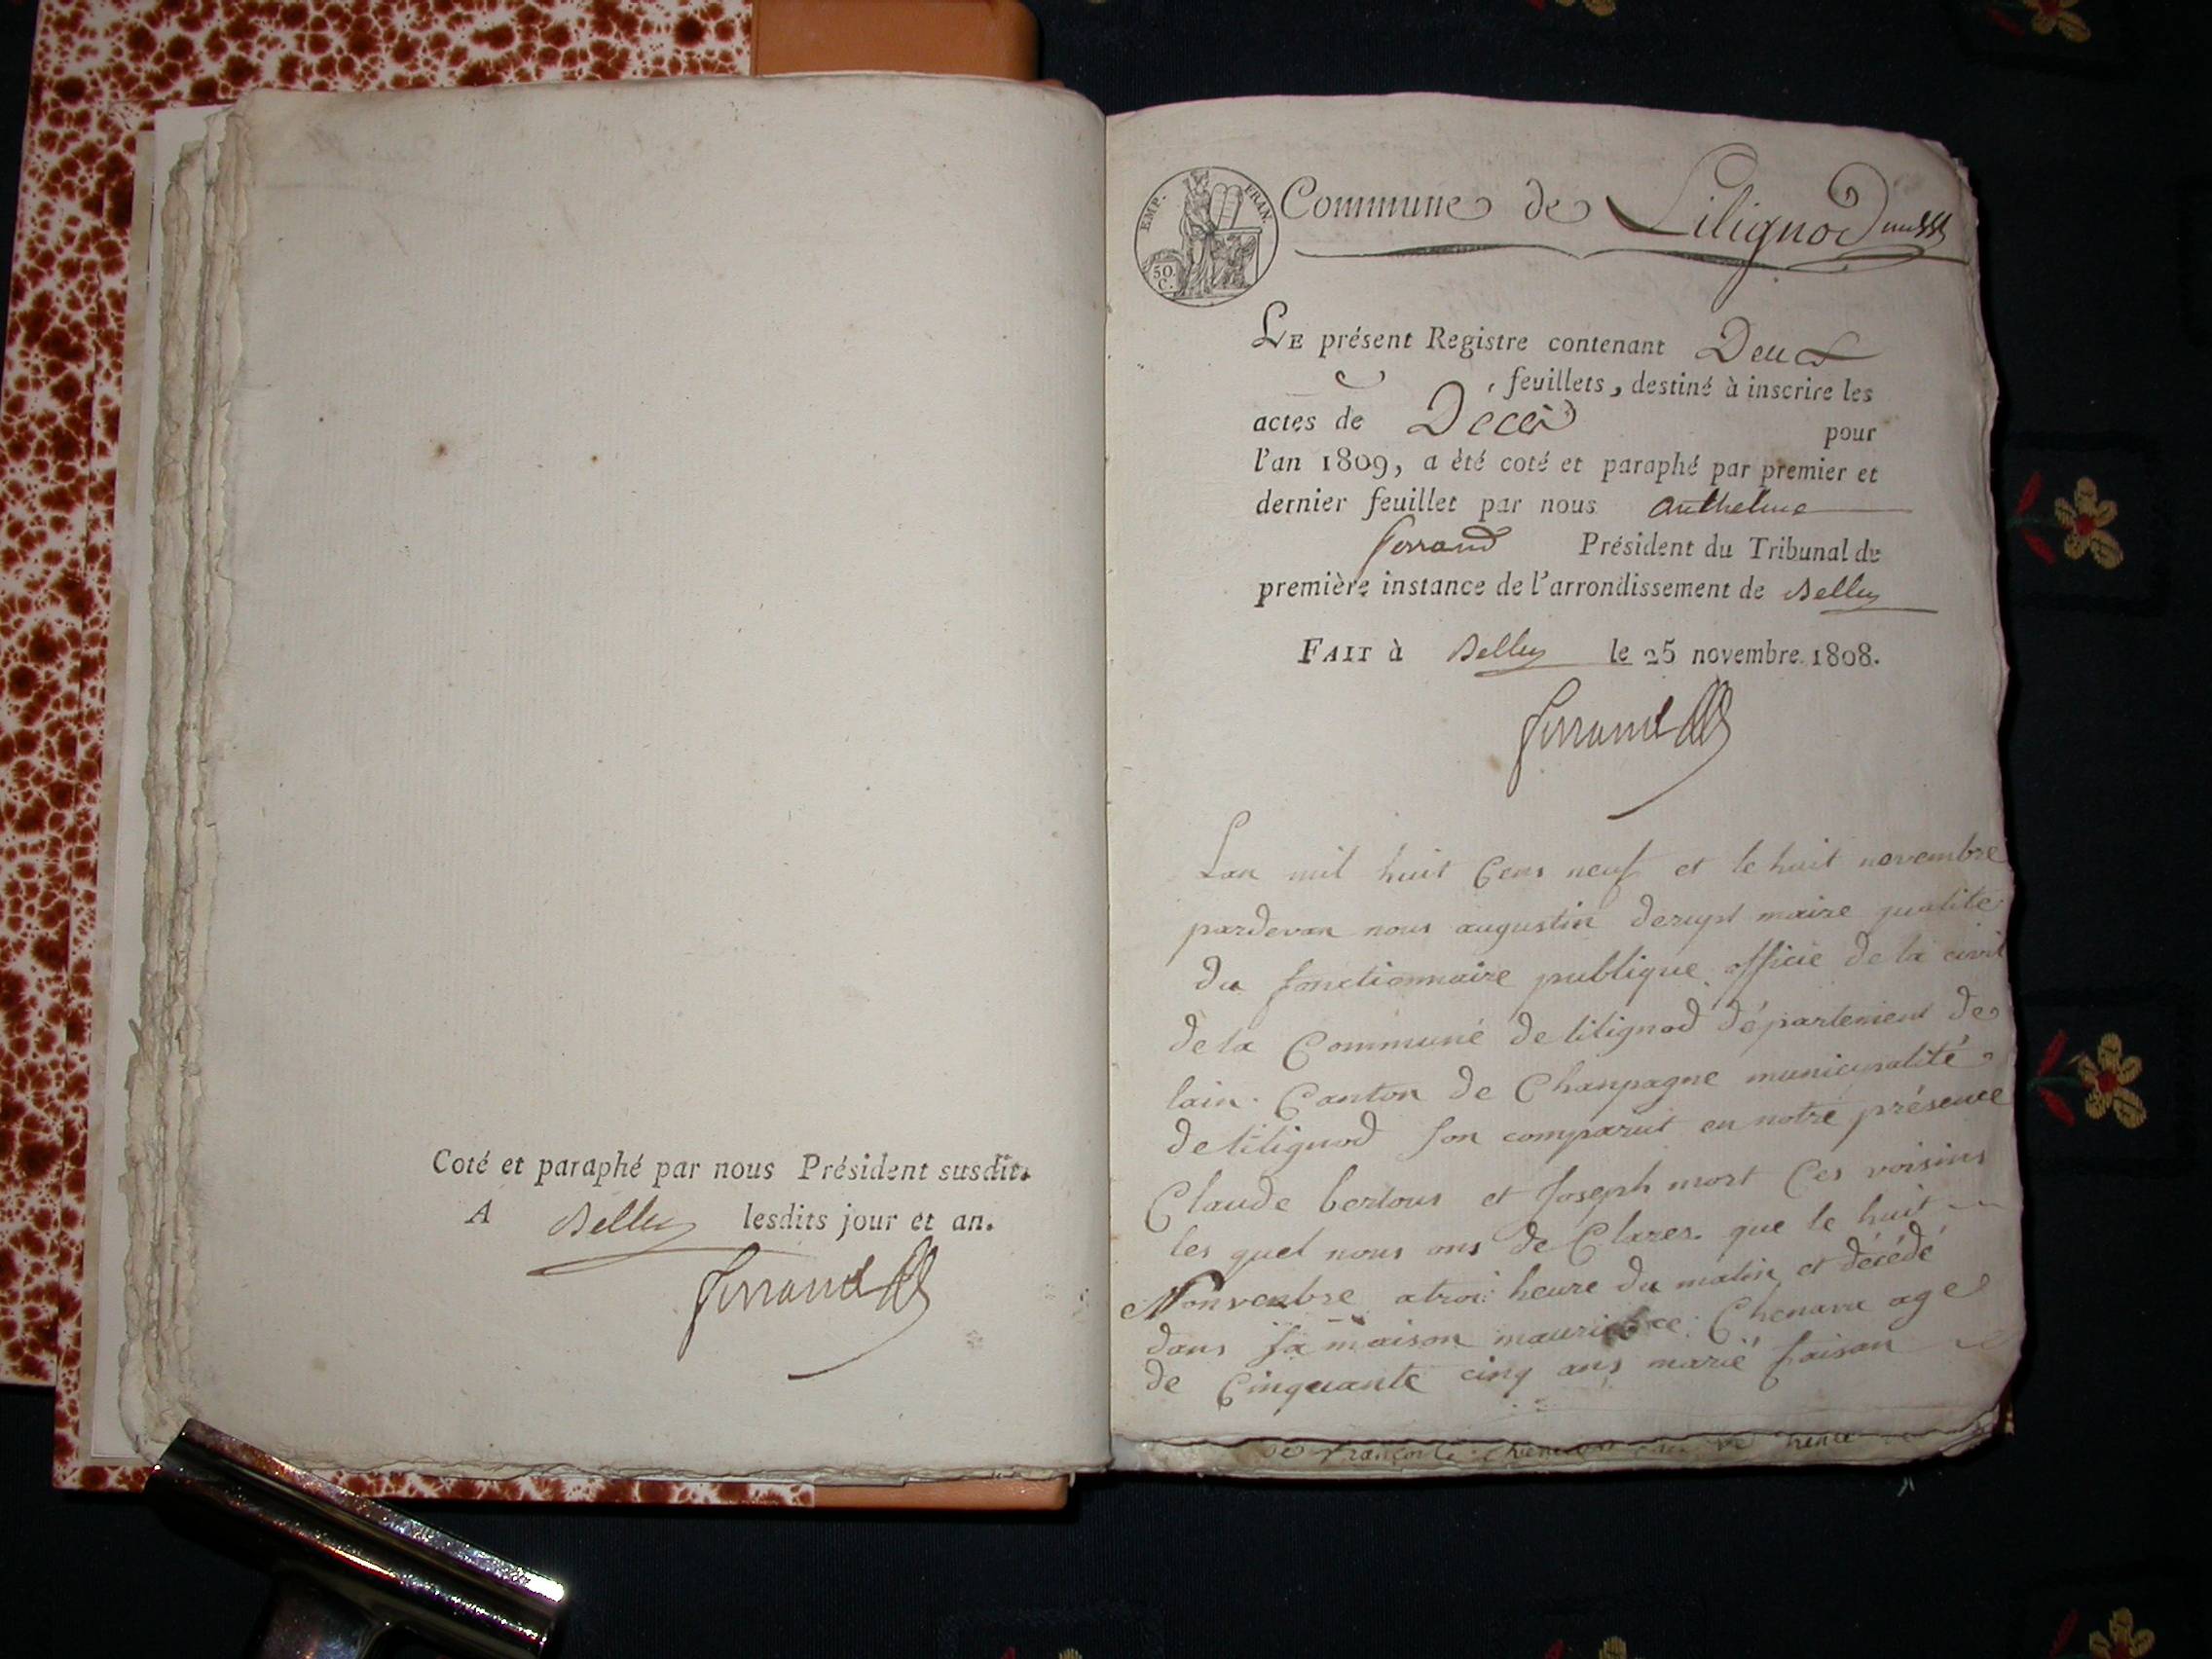 Coté et paraphé par nous Président susdit.
A Belley lesdits jour et an.
Ferrand
EMP. FRAN.
50. C.
Commune de Lilignod
LE présent Registre contenant Deux
feuillets, destiné à inscrire les
actes de Decès pour
l'an 1809, a été coté et paraphé par premier et
dernier feuillet par nous anthelme
ferrand Président du Tribunal de
première instance de l'arrondissement de Belley
FAIT à Belley le 25 novembre 1808.
Ferrand
Lan mil huit Cens neuf et le huit novembre
pardevan nous augustin derupt maire qualité
du fonctionnaire publique officie de la civil
de la Commune de lilignod département de
lain. Canton de Chanpagne municipalité
de lilignod son comparut en notre présence
Claude bertous et Joseph mort Ces voisins
les quel nous ons de Clares que le huit
Nonvenbre atroi heure du matin et décédé
dans sa maison Chenava age
de Cinquante cinq ans marié faisan